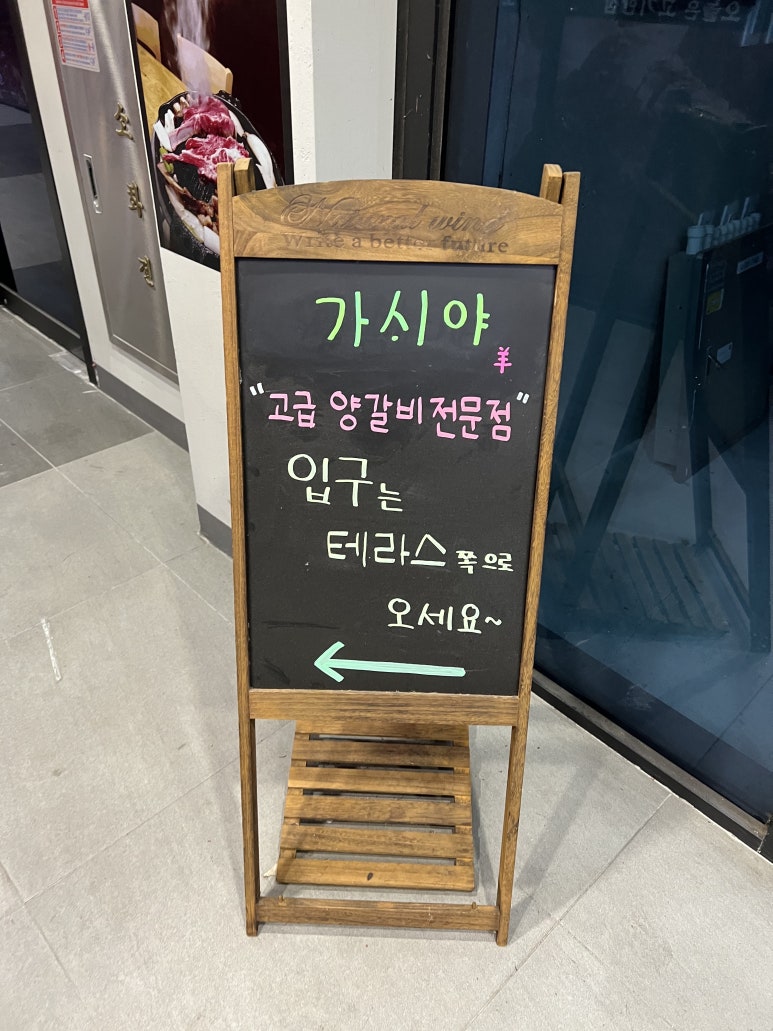 소화전
Natural wind
Write a better future
가시야
羊
"고급 양갈비전문점"
입구는
테라스 쪽으로
오세요~